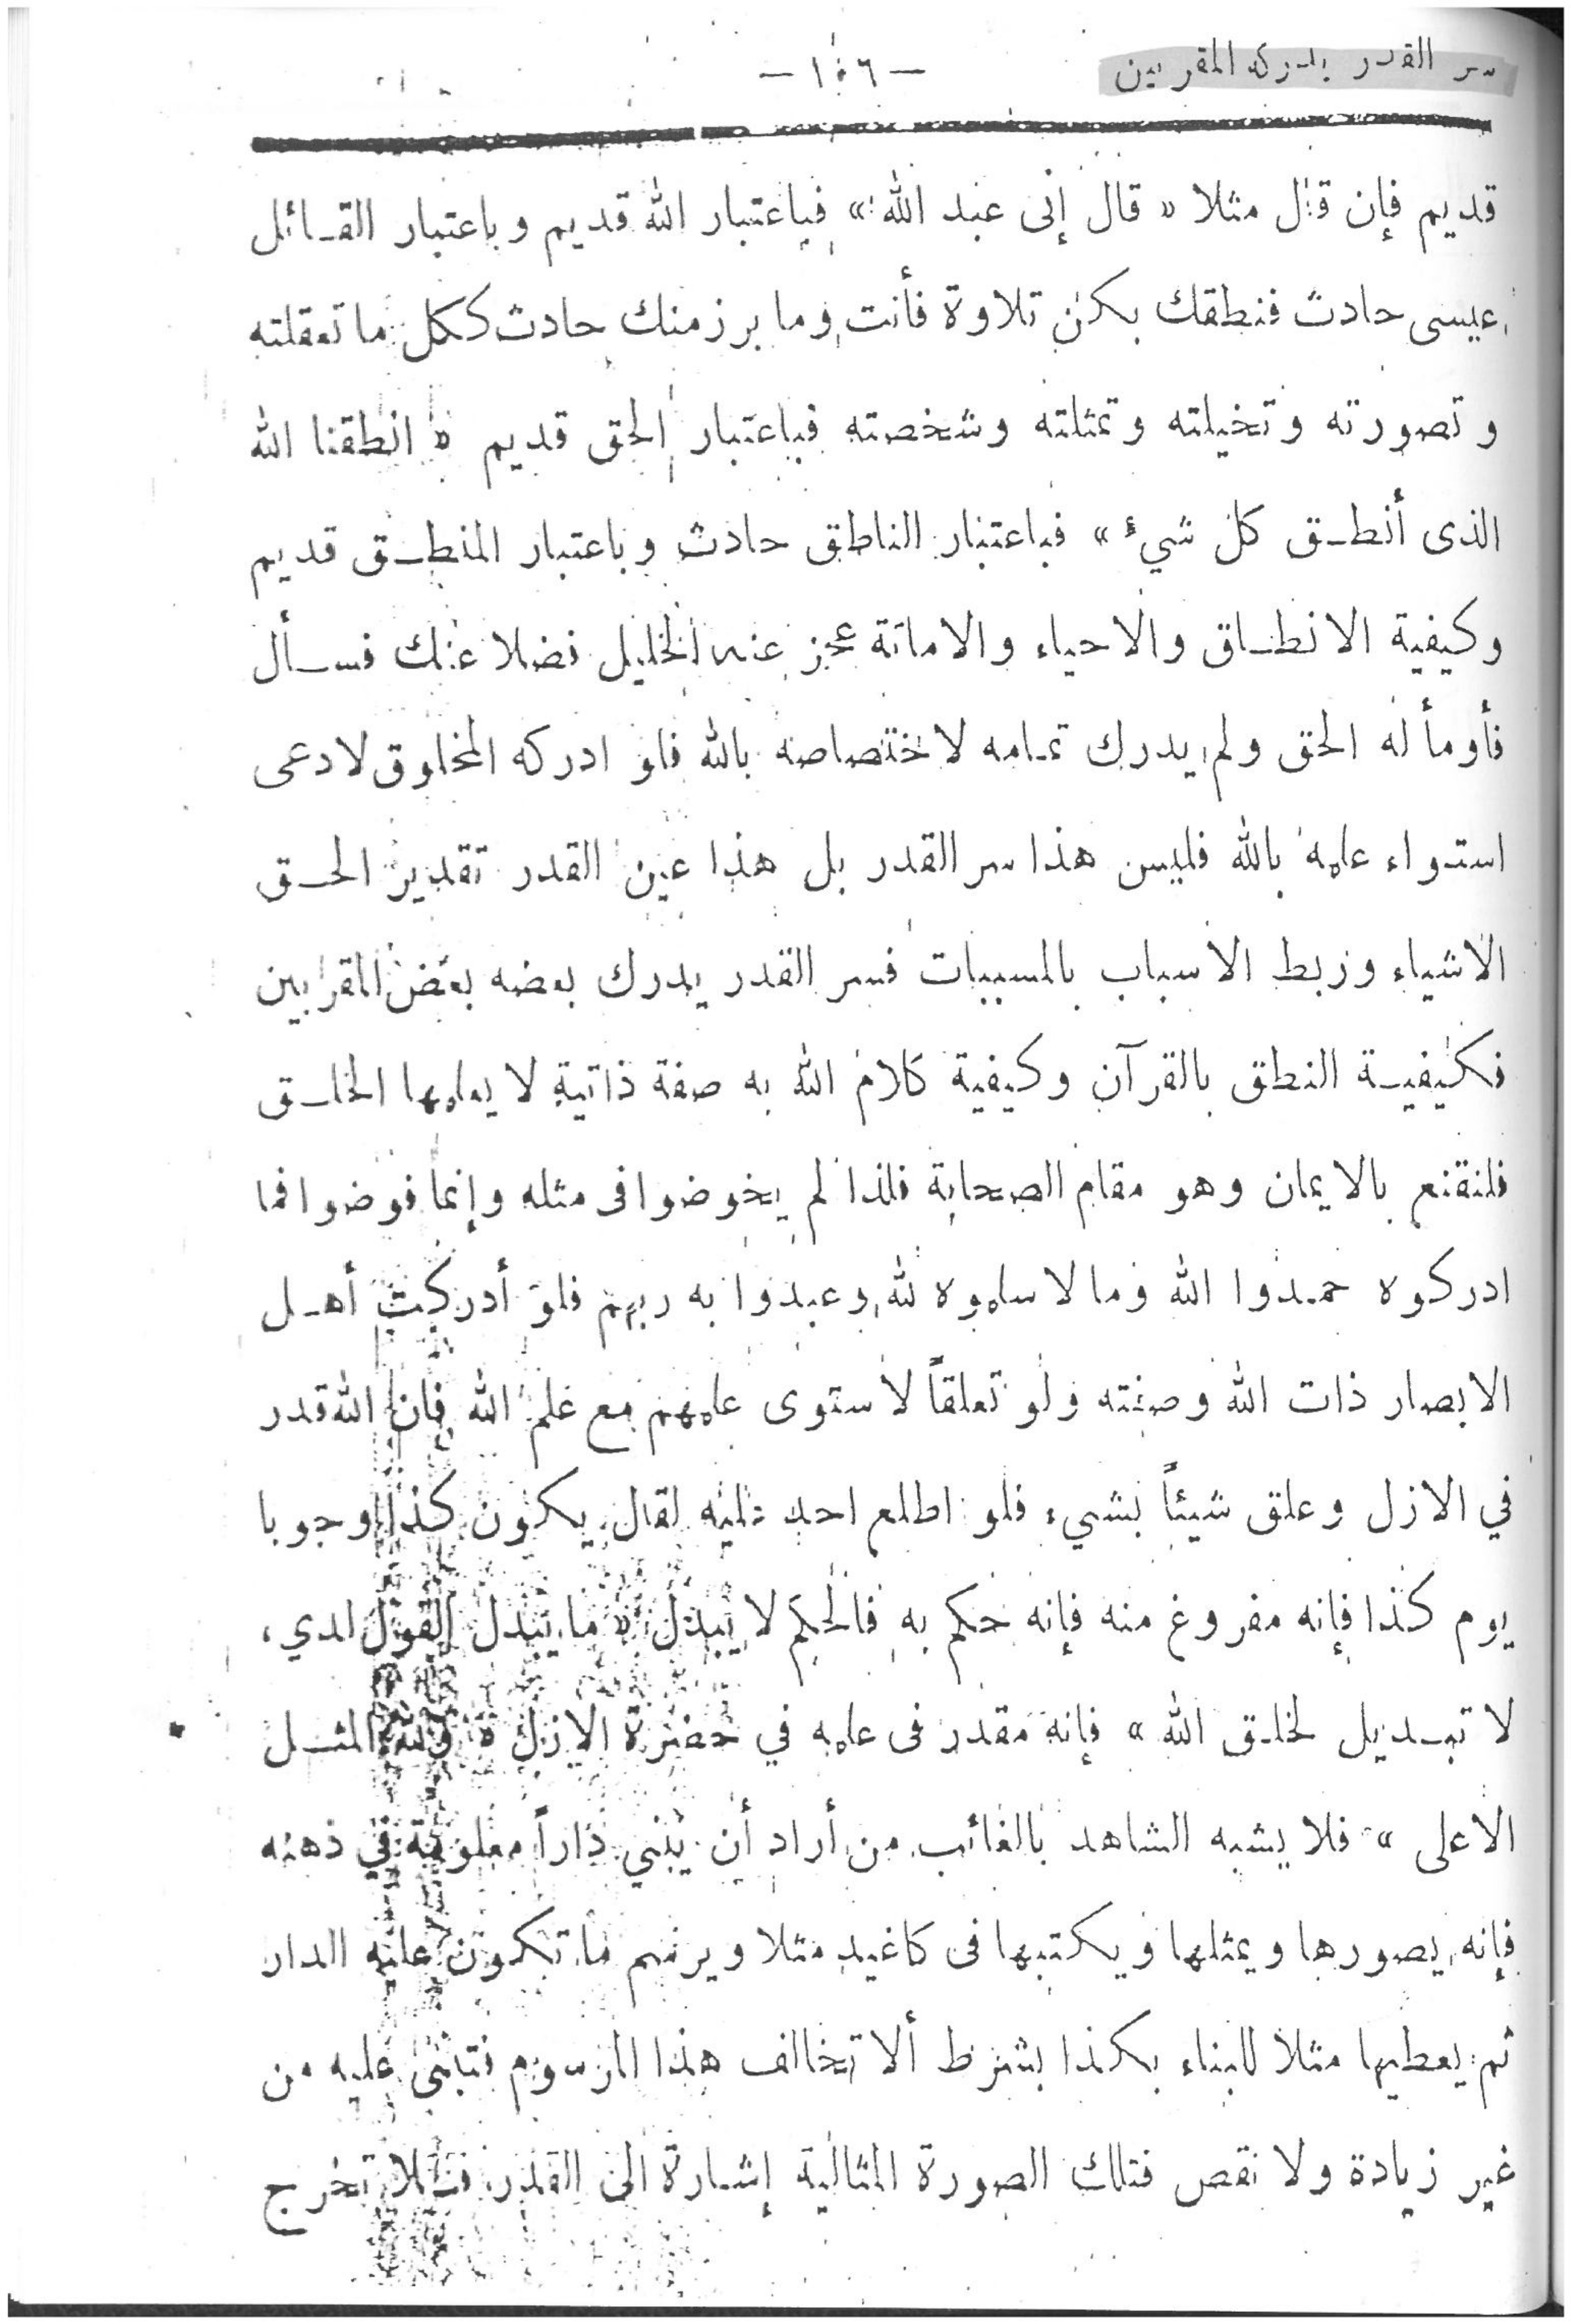 سر القدر يدركه المقربين
— ١٠٦ —
قديم فإن قال مثلا « قال إنى عبد الله » فباعتبار الله قديم وباعتبار القـائل
عيسى حادث فنطقك بكن تلاوة فأنت وما برز منك حادث ككل ما تعقلته
وتصورته وتخيلته وتمثلته وشخصته فباعتبار الحق قديم « انطقنا الله
الذى أنطـق كل شيء » فباعتبار الناطق حادث وباعتبار المنطـق قديم
وكيفية الانطـاق والاحياء والاماتة عجز عنه الخليل فضلا عنك فسـأل
فأومأ له الحق ولم يدرك تمامه لاختصاصه بالله فلو ادركه المخلوق لادعى
استواء علمه بالله فليس هذا سر القدر بل هذا عين القدر تقدير الحـق
الاشياء وربط الاسباب بالمسببات فسر القدر يدرك بعضه بعض المقربين
فكيفيـة النطق بالقرآن وكيفية كلام الله به صفة ذاتية لا يعلمها الخلـق
فلنقنع بالايمان وهو مقام الصحابة فلذا لم يخوضوا فى مثله وإنما فوضوا فما
ادركوه حمدوا الله وما لا سلموه لله وعبدوا به ربهم فلو أدركت أهـل
الابصار ذات الله وصفته ولو تعلقاً لاستوى علمهم مع علم الله فإن الله قدر
في الازل وعلق شيئاً بشيء فلو اطلع احد عليه لقال يكون كذا وجوبا
يوم كذا فإنه مفروغ منه فإنه حكم به فالحكم لا يبدل « ما يبدل القول لدي ،
لا تبـديل لخلـق الله » فإنه مقدر فى علمه في حضرة الازل « ولله المثـل
الاعلى » فلا يشبه الشاهد بالغائب من أراد أن يبني داراً معلومة في ذهنه
فإنه يصورها ويمثلها ويكتبها فى كاغيد مثلا ويرسم ما تكون عليه الدار
ثم يعطيها مثلا للبناء بكذا بشرط ألا تخالف هذا المرسوم فتبنى عليه من
غير زيادة ولا نقص فتلك الصورة المثالية إشارة الى القدر فلا تخرج